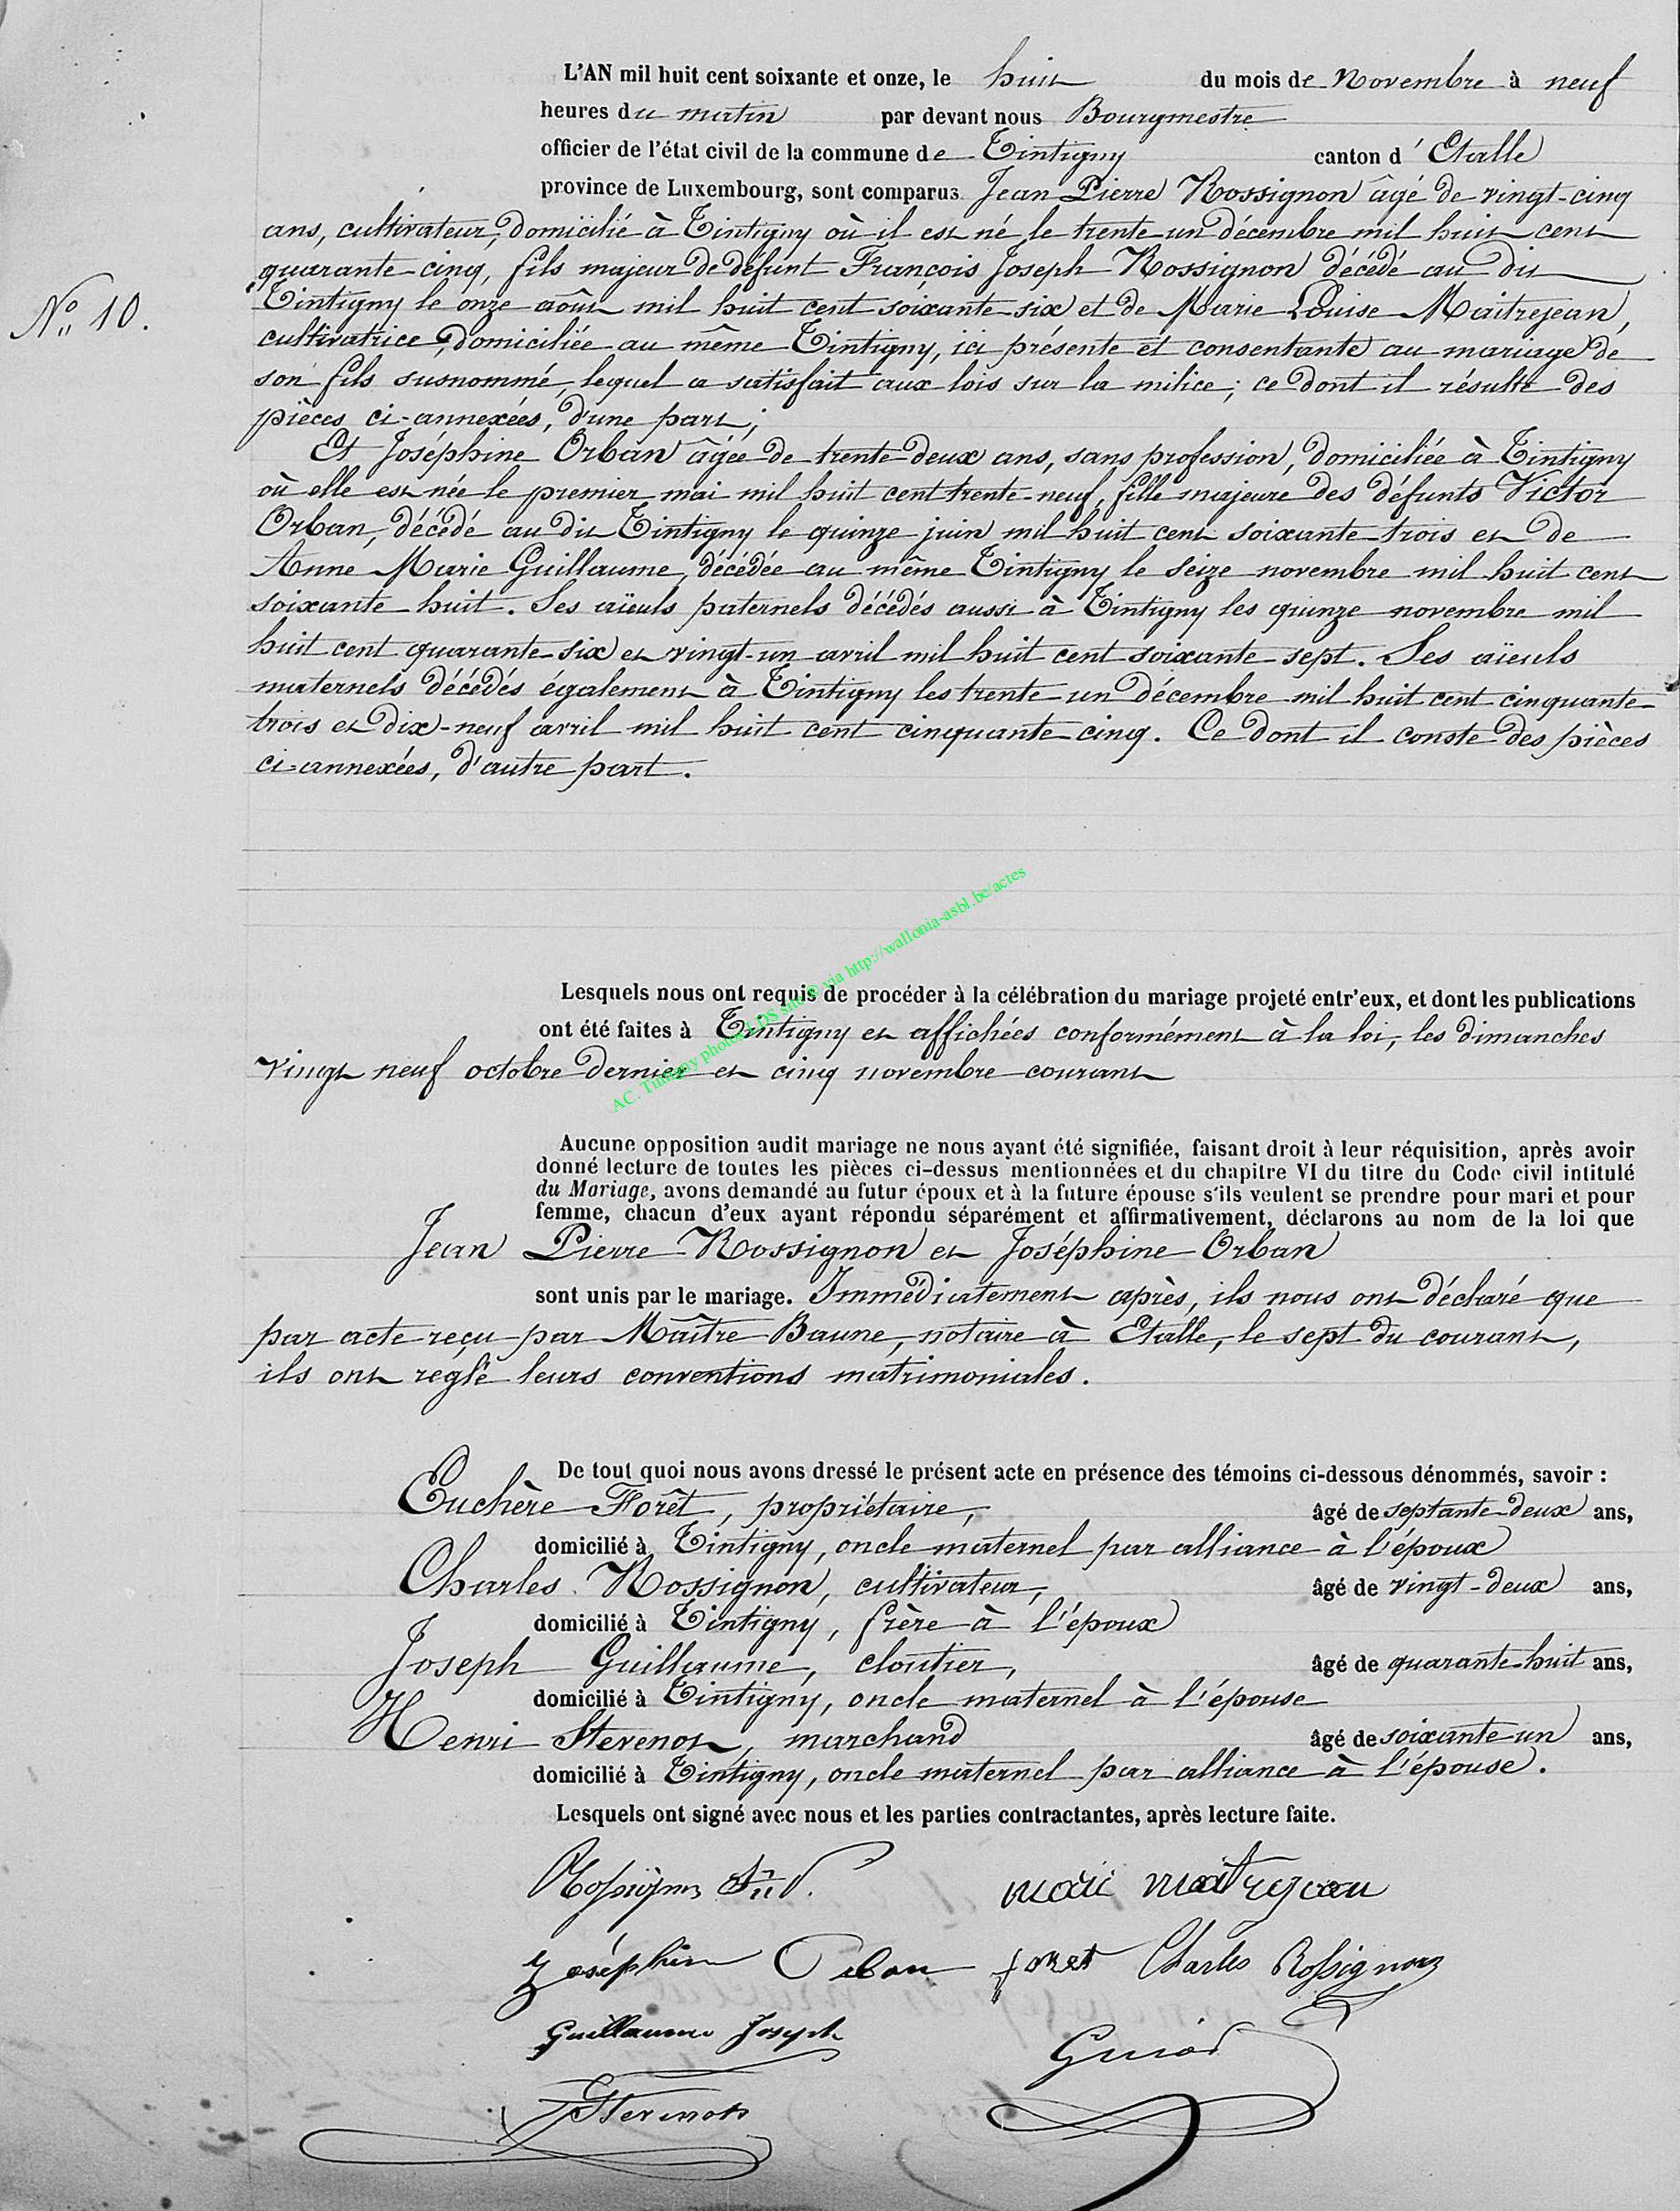 L'AN mil huit cent soixante et onze, le huit du mois de Novembre à neuf
heures du matin par devant nous Bourgmestre
officier de l'état civil de la commune de Tintigny canton d' Etalle
province de Luxembourg, sont comparus Jean Pierre Rossignon âgé de vingt-cinq
ans, cultivateur, domicilié à Tintigny où il est né le trente un décembre mil huit cent
quarante-cinq, fils majeur de défunt François Joseph Rossignon décédé au dit
Nº 10.
Tintigny le onze août mil huit cent soixante-six et de Marie Louise Maitrejean,
cultivatrice, domiciliée au même Tintigny, ici présente et consentante au mariage de
son fils susnommé, lequel a satisfait aux lois sur la milice; ce dont il résulte des
pièces ci-annexées, d'une part;
Et Joséphine Orban âgée de trente-deux ans, sans profession, domiciliée à Tintigny
où elle est née le premier mai mil huit cent trente-neuf, fille majeure des défunts Victor
Orban, décédé au dit Tintigny le quinze juin mil huit cent soixante-trois et de
Anne Marie Guillaume, décédée au même Tintigny le seize novembre mil huit cent
soixante-huit. Ses aïeuls paternels décédés aussi à Tintigny les quinze novembre mil
huit cent quarante-six et vingt-un avril mil huit cent soixante-sept. Ses aïeuls
maternels décédés également à Tintigny les trente-un décembre mil huit cent cinquante-
trois et dix-neuf avril mil huit cent cinquante-cinq. Ce dont il conste des pièces
ci-annexées, d'autre part.
AC. Tintigny photos LDS site @ via http://wallonia-asbl.be/actes
Lesquels nous ont requis de procéder à la célébration du mariage projeté entr'eux, et dont les publications
ont été faites à Tintigny et affichées conformément à la loi, les dimanches
vingt neuf octobre dernier et cinq novembre courant
Aucune opposition audit mariage ne nous ayant été signifiée, faisant droit à leur réquisition, après avoir
donné lecture de toutes les pièces ci-dessus mentionnées et du chapitre VI du titre du Code civil intitulé
du Mariage, avons demandé au futur époux et à la future épouse s'ils veulent se prendre pour mari et pour
femme, chacun d'eux ayant répondu séparément et affirmativement, déclarons au nom de la loi que
Jean Pierre Rossignon et Joséphine Orban
sont unis par le mariage. Immédiatement après, ils nous ont déclaré que
par acte reçu par Maître Baune, notaire à Etalle, le sept du courant,
ils ont réglé leurs conventions matrimoniales.
De tout quoi nous avons dressé le présent acte en présence des témoins ci-dessous dénommés, savoir :
Euchère Forêt, propriétaire, âgé de septante-deux ans,
domicilié à Tintigny, oncle maternel par alliance à l'époux
Charles Rossignon, cultivateur, âgé de vingt-deux ans,
domicilié à Tintigny, frère à l'époux
Joseph Guillaume, cloutier, âgé de quarante-huit ans,
domicilié à Tintigny, oncle maternel à l'épouse
Henri Stevenot, marchand âgé de soixante-un ans,
domicilié à Tintigny, oncle maternel par alliance à l'épouse.
Lesquels ont signé avec nous et les parties contractantes, après lecture faite.
Rossignon
Joséphin Orban foret Charles Rossignon
Guillaume Joseph
Stevenot